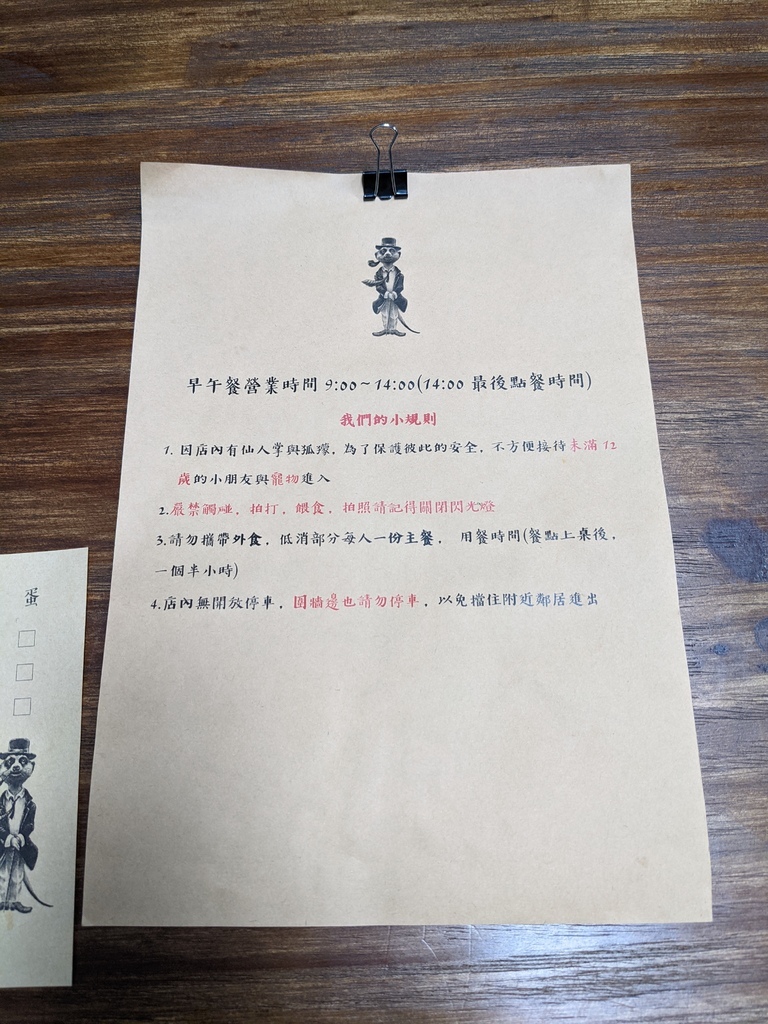 早午餐營業時間 9:00~14:00(14:00 最後點餐時間)
我們的小規則
1. 因店內有仙人掌與狐獴, 為了保護彼此的安全, 不方便接待未滿 12
歲的小朋友與寵物進入
2.嚴禁觸碰, 拍打, 餵食, 拍照請記得關閉閃光燈
3.請勿攜帶外食, 低消部分每人一份主餐, 用餐時間(餐點上桌後,
一個半小時)
4.店內無開放停車, 圍牆邊也請勿停車, 以免擋住附近鄰居進出
蛋